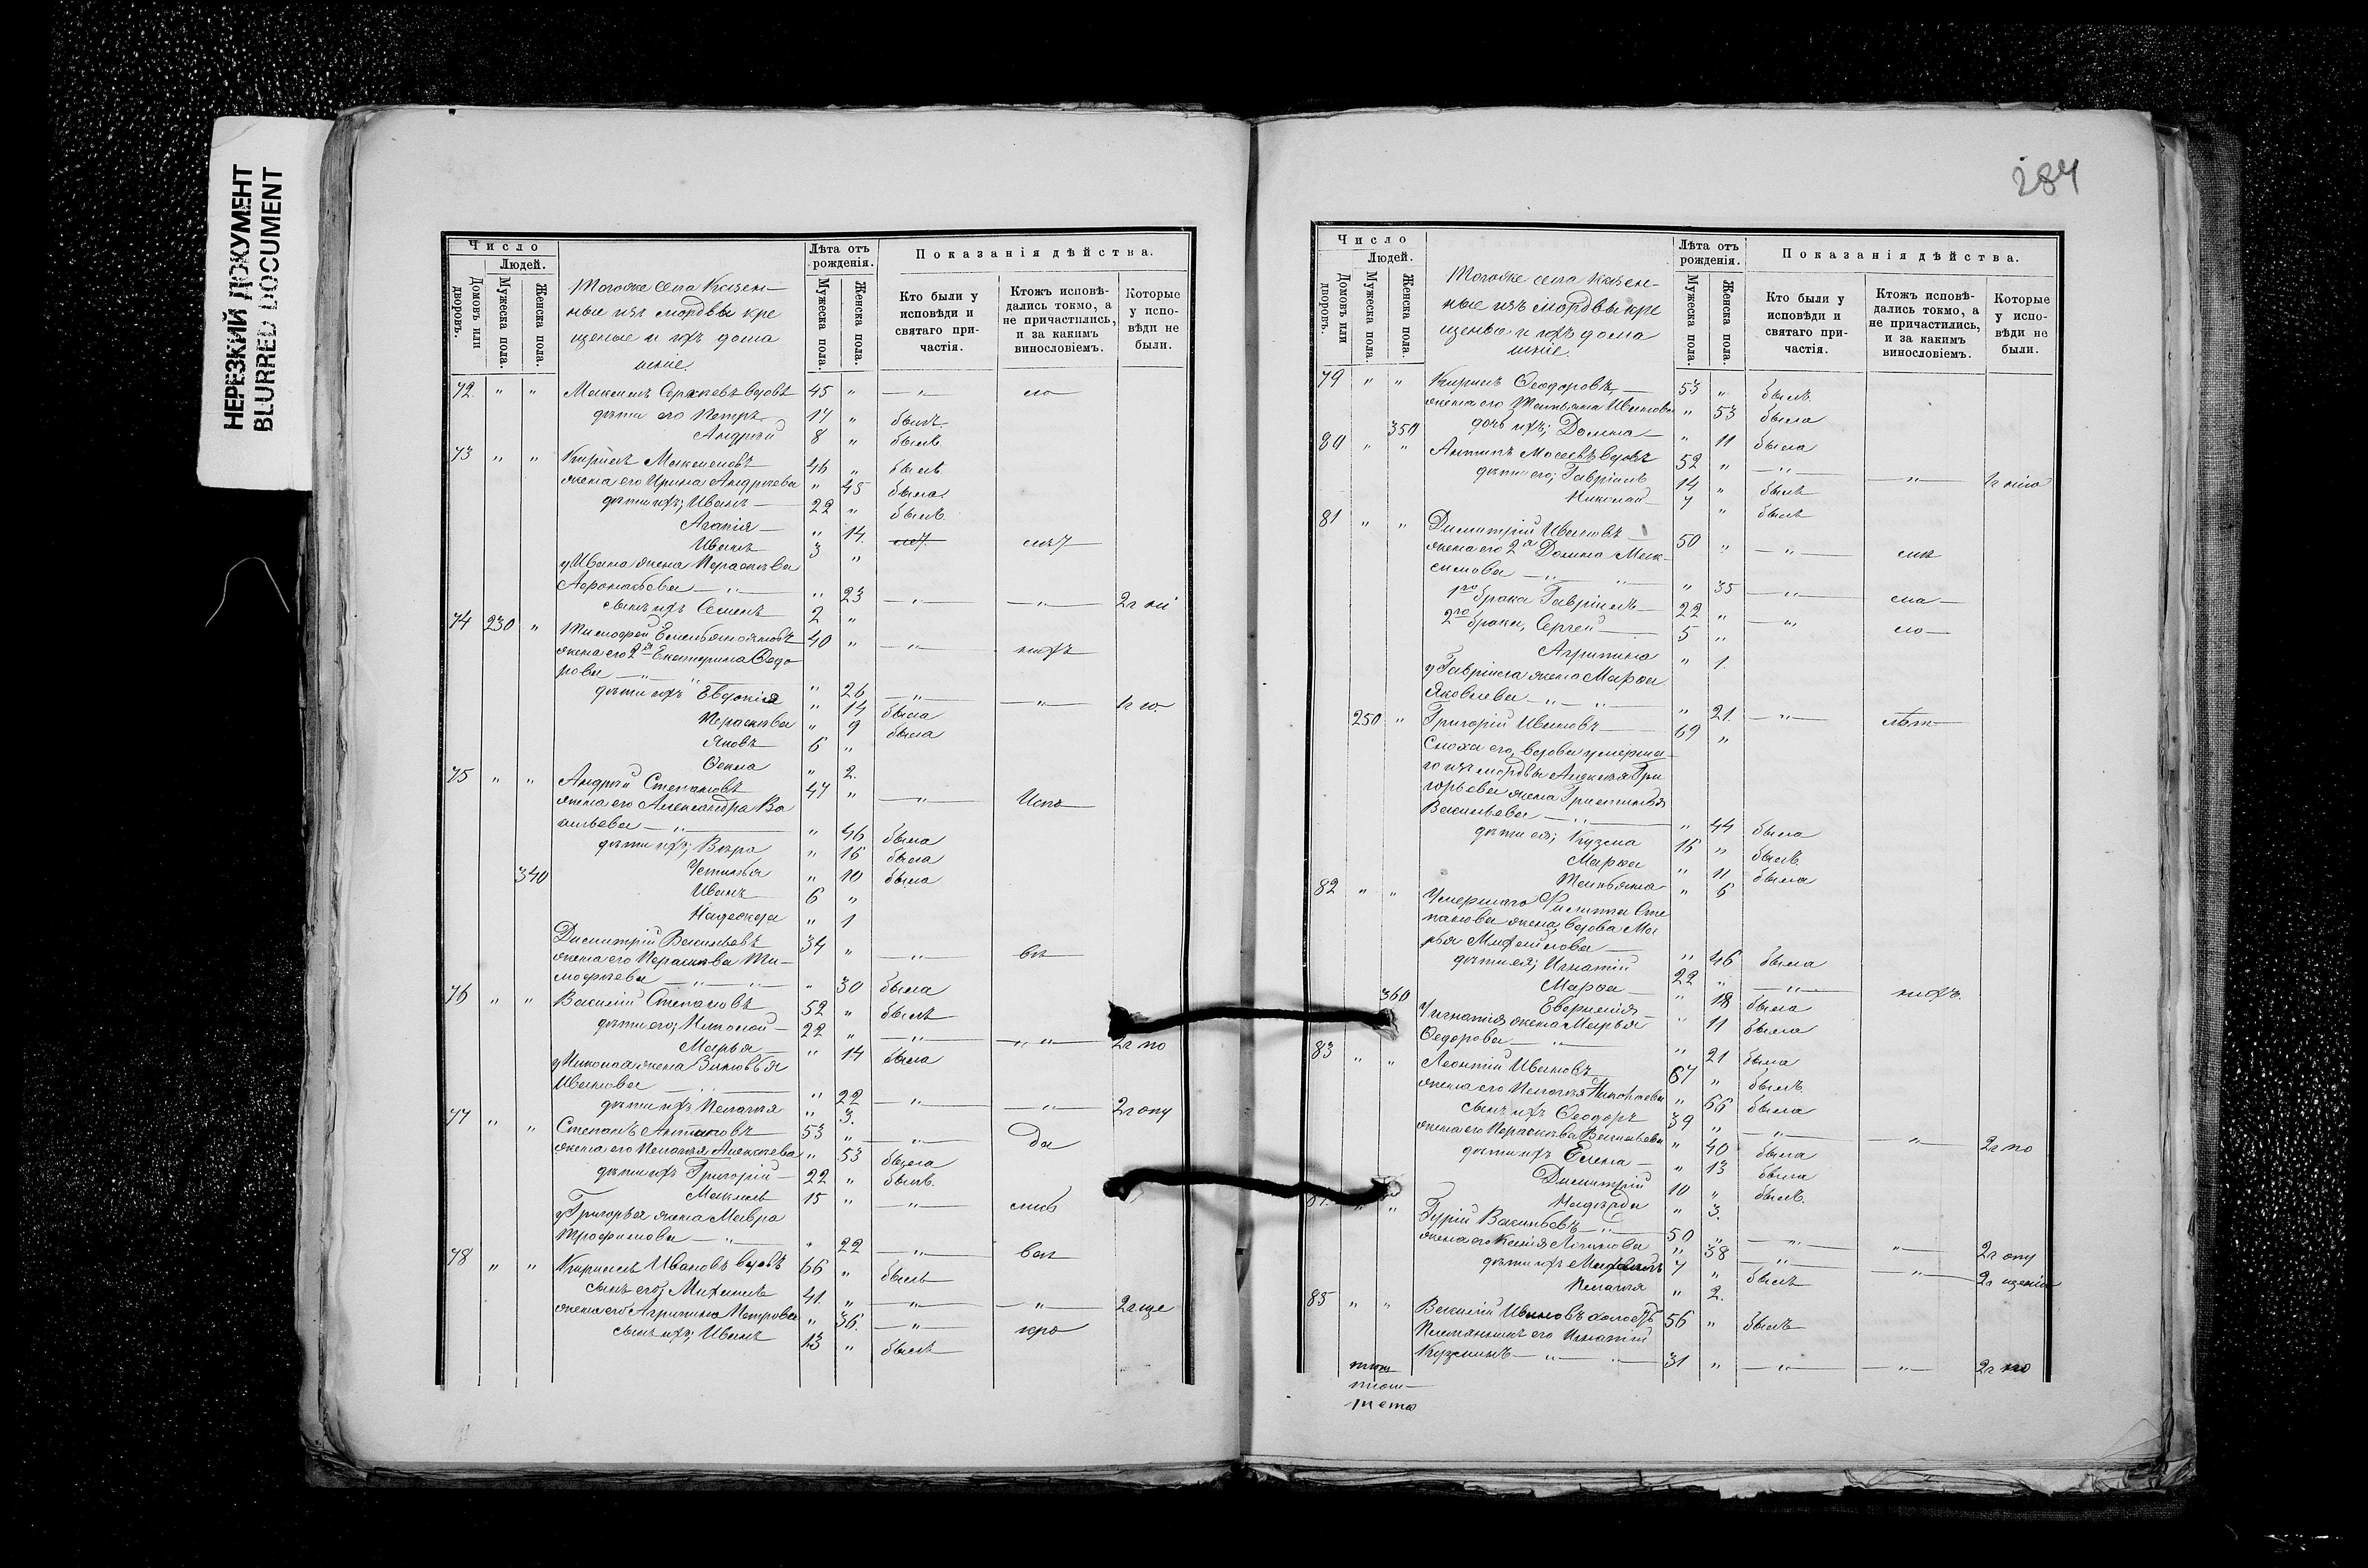 НЕРЕЗКИЙ ДОКУМЕНТ
BLURRED DOCUMENT
Число
Людей.
Домовъ или дворовъ.
Мужеска пола.
Женска пола.
Тогоже села Казен-
ные изъ мордвы кре
щеные и ихъ дома
шніе.
Лѣта отъ рожденія.
Мужеска пола.
Женска пола.
Показанія дѣйства.
Кто были у исповѣди и святаго причастія.
Ктожъ исповѣдались токмо, а не причастились, и за какимъ винословіемъ.
Которые у исповѣди не были.
72. " " Максимъ Сергѣевъ вдовъ 45 " — " — по
дѣти его Петръ 17 " былъ
Андрей 8 " былъ
73 " " Кирилъ Максимовъ 46 " былъ
жена его Ирина Андреева " 45 была
дѣти ихъ; Иванъ 22 " былъ
Агапія " 14.
Иванъ 3 "
у Ивана жена Параскева
— " — " 23 — " — — " —
сынъ ихъ Семенъ 2 "
74 230 " Тимофей 40 " — " —
жена его 2я Екатерина Ѳедо
рова — " — " 26 — " — — " —
дѣти ихъ Евдокія " 14 была
Параскева " 9 была
Яковъ 6 "
Ѳекла " 2.
75 " " Андрей Степановъ 47 " — " —
жена его Александра Ва
сильева — " — " 46 была
дѣти ихъ; Вѣра " 16 была
340 Устинья " 10 была
Иванъ 6 "
Надежда " 1
Димитрій Васильевъ 34 " — " —
жена его Параскева Ти-
мофеева — " — " 30 была
76 " " Василій Степановъ 52 " былъ
дѣти его; Николай 22 " — " — " " 2г по
Марья " 14 была
у Николая жена Зиновья
Иванова " 22 — " — — " — 2г опу
дѣти ихъ Пелагея " 3.
77 " " Степанъ Антоновъ 53 " — " — да
жена его Пелагея Алексѣева " 53 была
дѣти ихъ Григорій 22 " былъ
Максимъ 15 " — " —
у Григорья жена Мавра
Трофимова — " — " 22 — " —
78 " " Кирилъ Ивановъ вдовъ 66 " былъ
сынъ его; Михаилъ 41. " — " — — " — 2г ще
жена его Агрипина Петрова " 36. — " —
сынъ ихъ; Иванъ 13 " былъ
284
Число
Людей.
Домовъ или дворовъ.
Мужеска пола.
Женска пола.
Тогоже села Казен-
ные изъ мордвы кре
щеные и ихъ дома
шніе.
Лѣта отъ рожденія.
Мужеска пола.
Женска пола.
Показанія дѣйства.
Кто были у исповѣди и святаго причастія.
Ктожъ исповѣдались токмо, а не причастились, и за какимъ винословіемъ.
Которые у исповѣди не были.
79 " " Кирилъ Ѳеодоровъ 53 " былъ
жена его Татьяна Иванова " 53 была
350 дочь ихъ; Домна " 11 была
80 " " Антипъ Мосеевъ вдовъ 52 " — " — — " —
дѣти его; Гавріилъ 14 " былъ
Николай 7 " былъ
81 " " Димитрій Ивановъ 50 " — " —
жена его 2я Домна Мак-
симова — " — " 35 — " —
1го брака Гавріилъ 22 " — " —
2го брака, Сергей 5 "
Агрипина " 1.
у Гавріила жена Марѳа
Яковлева — " — " 21. — " —
250 " Григорій Ивановъ 69 "
Сноха его, вдова умерша
го изъ мордвы Алексѣя Гри
горьева жена
Васильева — " — " 44 была
дѣти ея; Кузма 16 " былъ
Марѳа " 11 была
Татьяна " 6
82 " " Умершаго Филиппа Сте
панова жена, вдова Ма
рья Михайлова " 46 была
дѣти ея; Игнатій 22 " — " —
Марѳа " 18 была
360 " 11 была
у Игнатія жена Марья
Ѳедорова " 21 была
83 " " Леонтій Ивановъ 67 " былъ
жена его Пелагея " 66 была
сынъ ихъ Ѳеодоръ 39 " — " — — " — 2г по
жена его Параскева Васильева " 40 была
дѣти ихъ Елена " 13 была
Димитрій 10 " былъ
" 3.
" " Гурій Васильевъ 50 " — " — — " — 2г опу
жена его Ксенія " 38 — " — — " — 2г щенію
дѣти ихъ Михаилъ 7 " былъ
Пелагея " 2.
85 " " Василій Ивановъ холостъ 56 " былъ
Племянникъ его Игнатій
Кузминъ — " — 31 " — " — — " — 2г по